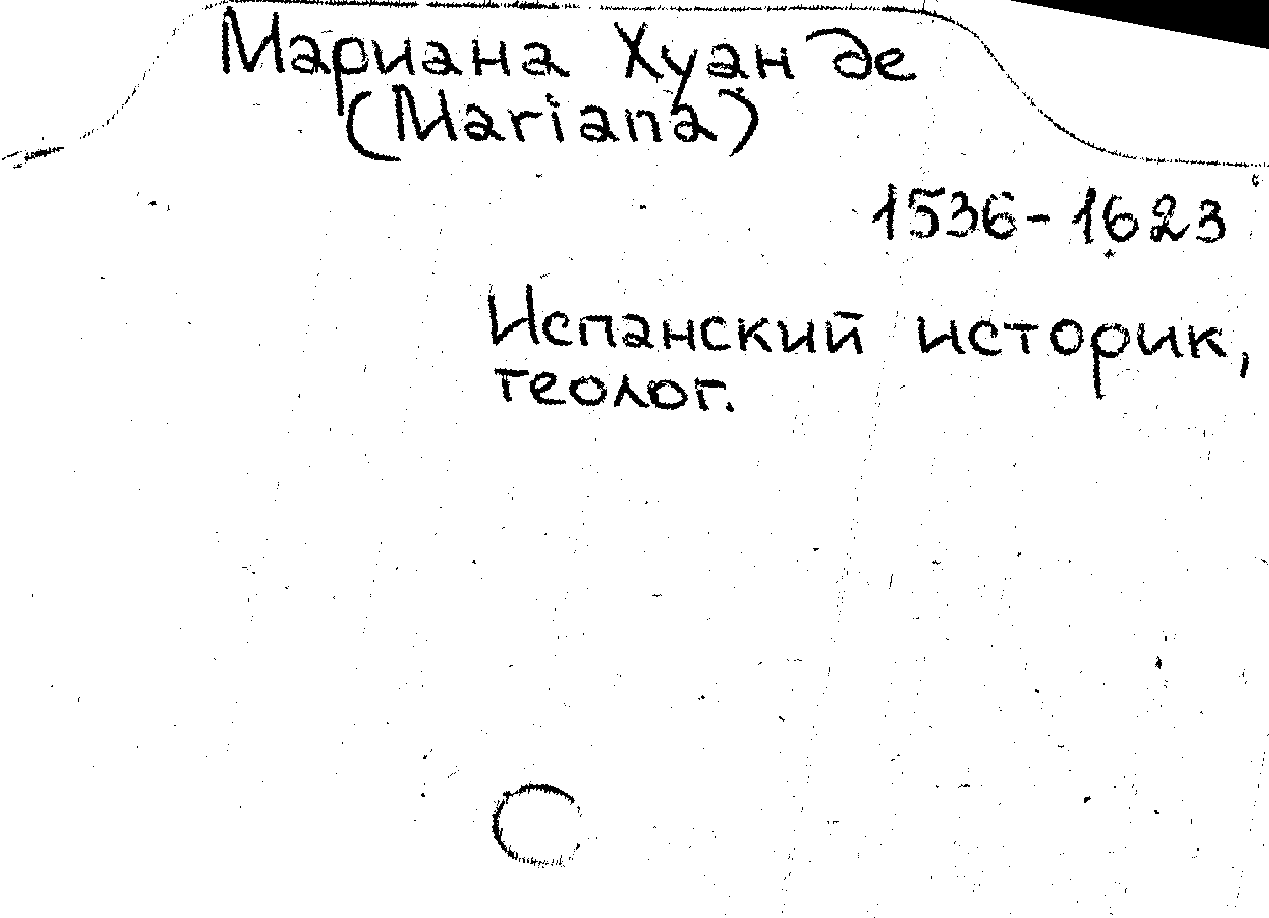 Мариана Хуан де
(Mariana)
1536-1623
Испанский историк,
теолог.